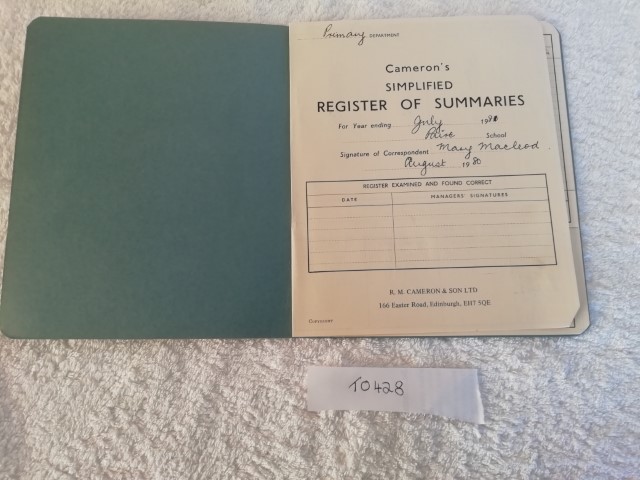 Primary DEPARTMENT
Cameron's
SIMPLIFIED
REGISTER OF SUMMARIES
For Year ending July 1981
Pairc School
Signature of Correspondent Mary Macleod
August 1980
REGISTER EXAMINED AND FOUND CORRECT
DATE MANAGERS' SIGNATURES
R. M. CAMERON & SON LTD
166 Easter Road, Edinburgh, EH7 5QE
COPYRIGHT
TO428